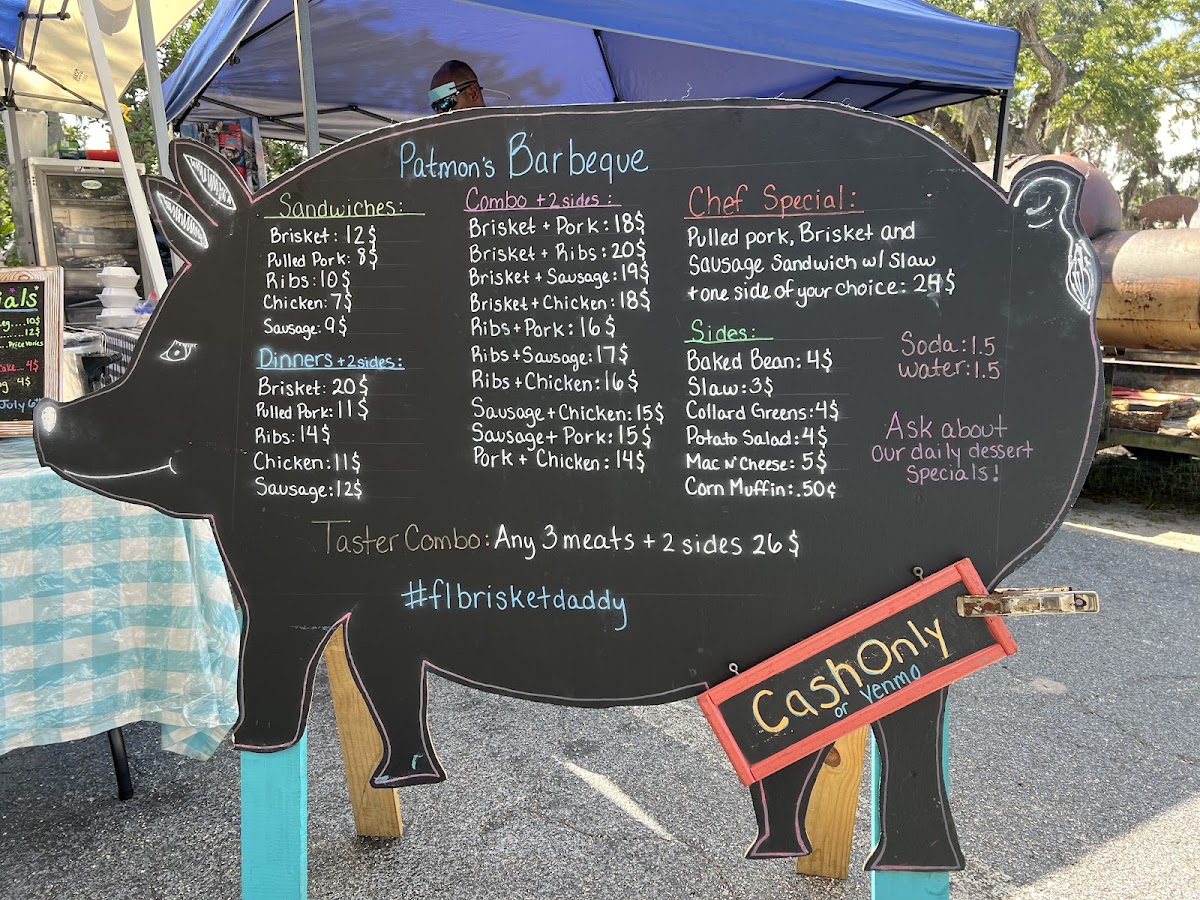 Patmon's Barbeque
Sandwiches:
Brisket: 12$
Pulled Pork: 8$
Ribs: 10$
Chicken: 7$
Sausage: 9$
Dinners + 2 sides:
Brisket: 20$
Pulled Pork: 11$
Ribs: 14$
Chicken: 11$
Sausage: 12$
Combo + 2 sides:
Brisket + Pork: 18$
Brisket + Ribs: 20$
Brisket + Sausage: 19$
Brisket + Chicken: 18$
Ribs + Pork: 16$
Ribs + Sausage: 17$
Ribs + Chicken: 16$
Sausage + Chicken: 15$
Sausage + Pork: 15$
Pork + Chicken: 14$
Chef Special:
Pulled pork, Brisket and
Sausage Sandwich w/ Slaw
+ one side of your choice:
Sides:
Baked Bean: 4$
Slaw: 3$
Collard Greens: 4$
Potato Salad: 4$
Mac N' Cheese: 5$
Corn Muffin: .50¢
Soda: 1.5
Water: 1.5
Ask about
our daily dessert
Specials!
Taster Combo: Any 3 meats + 2 sides 26$
#flbrisketdaddy
Cash Only
or Venmo
ials
10$
12$
Price varies
4$
4$
July